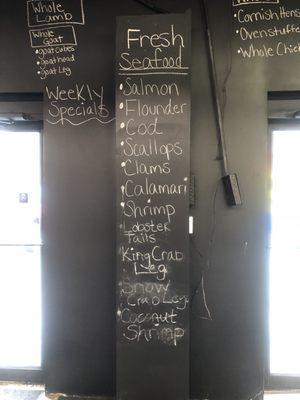 Whole
Lamb
Whole
Goat
Goat Cubes
Goat Head
Goat Leg
Weekly
Specials
Fresh
Seafood
Salmon
Flounder
Cod
Scallops
Clams
Calamari
Shrimp
Lobster
Tails
King Crab
Leg
Snow
Crab Leg
Coconut
Shrimp
Cornish Hens
Oven stuffe
Whole Chic